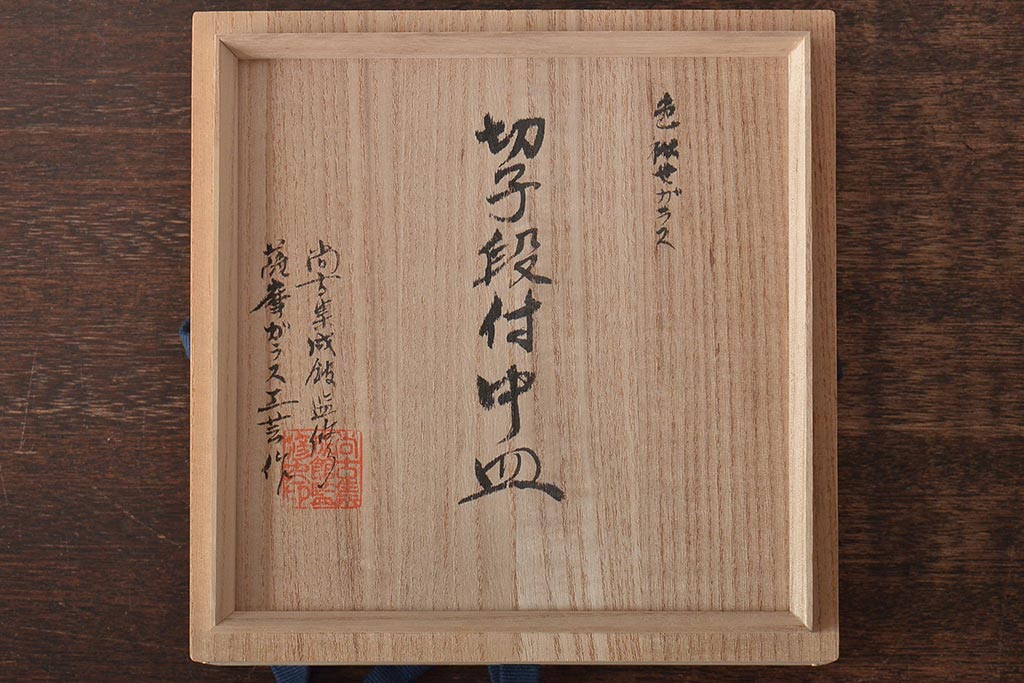 色被せガラス
切子段付中皿
尚古集成館監修
薩摩ガラス工芸作
尚古集成館監修之印